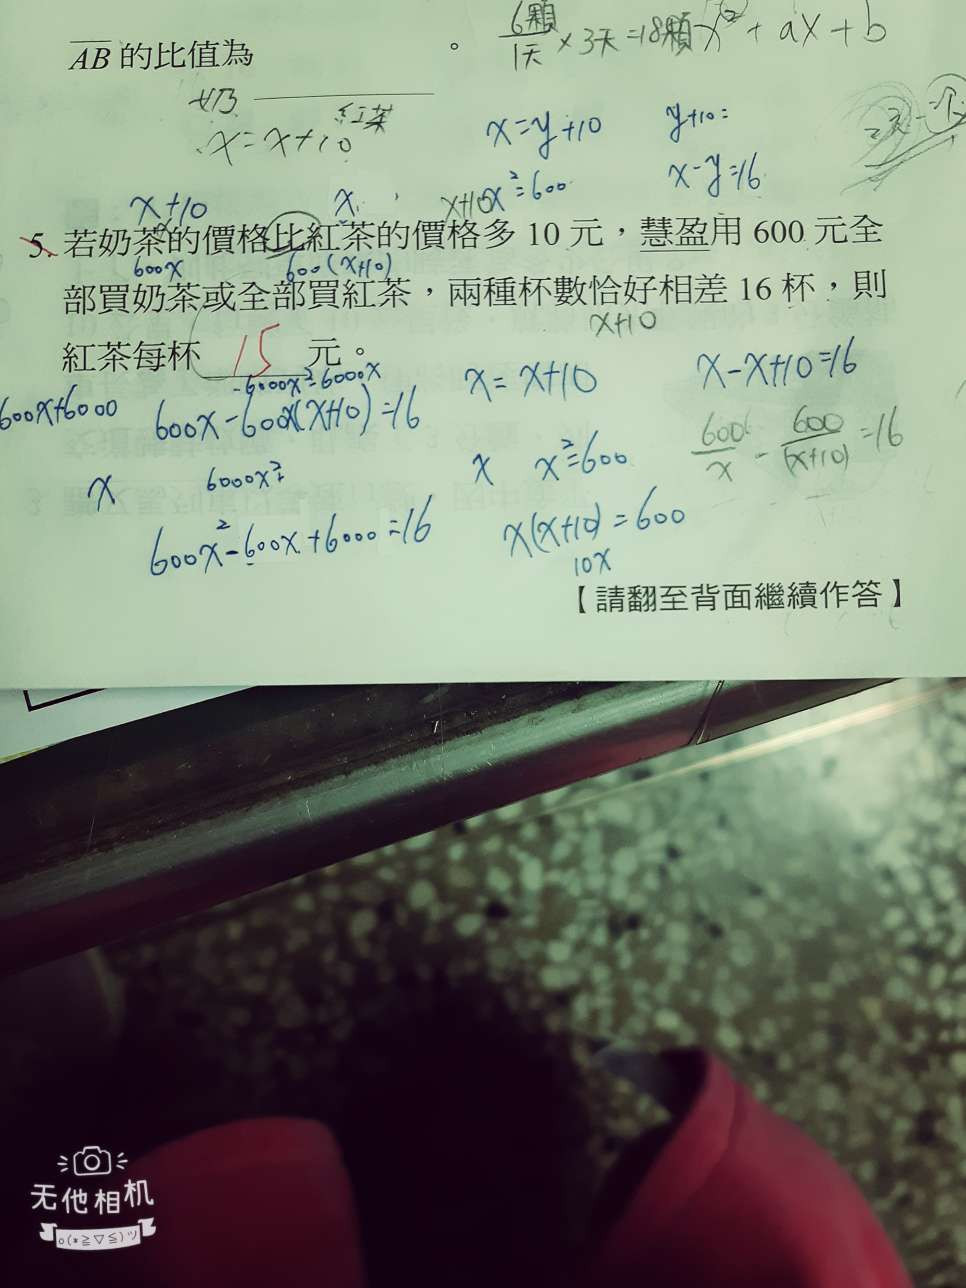 AB 的比值為 。
6顆/1天 × 3天=18顆 x² + ax + b
奶 紅茶
x=x+10 x=y+10 y+10=
x+10 x x+10 x²=600 x-y=16
5. 若奶茶的價格比紅茶的價格多 10 元，慧盈用 600 元全
600x 600(x+10)
部買奶茶或全部買紅茶，兩種杯數恰好相差 16 杯，則
x+10
紅茶每杯 15 元。
-6000x²=6000x x=x+10 x-x+10=16
600x+6000 600x-600x(x+10)=16
x 6000x² x x²=600 600/x - 600/(x+10) =16
600x²-600x+6000=16 x(x+10)=600
10x
【請翻至背面繼續作答】
无他相机
o(*≧▽≦)ツ